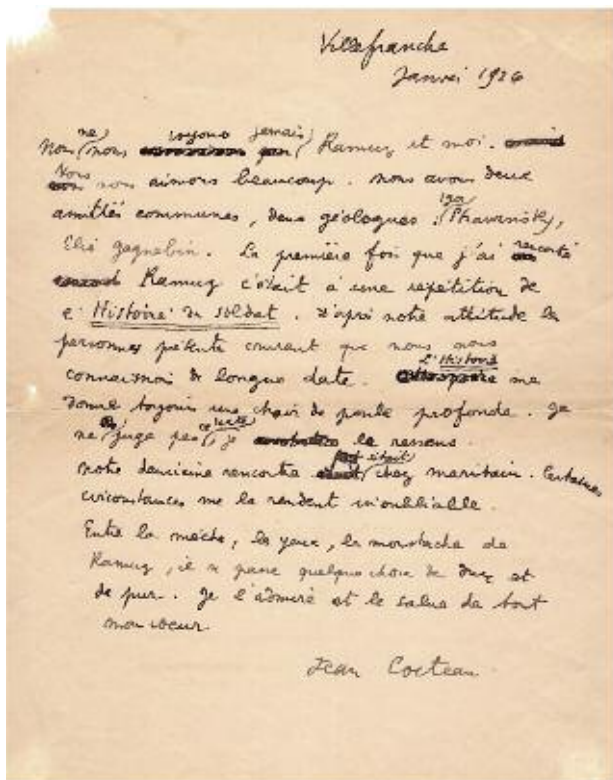 Villefranche
Janvier 1926
Nous ne nous voyons jamais Ramuz et moi.
Nous nous aimons beaucoup. Nous avons deux
amitiés communes, deux géologues : Igor Strawinsky,
Elie Gagnebin. La première fois que j'ai rencontré
Ramuz c'était à une répétition de
l'Histoire du soldat. D'après notre attitude les
personnes présentes crurent que nous nous
connaissions de longue date. L'Histoire me
donne toujours une chair de poule profonde. Je
ne juge pas cette je le ressens.
Notre deuxième rencontre était chez Maritain. Certaines
circonstances me la rendent inoubliable.
Entre la mèche, les yeux, la moustache de
Ramuz, il se passe quelque chose de dur et
de pur. Je l'admire et le salue de tout
mon coeur.
Jean Cocteau